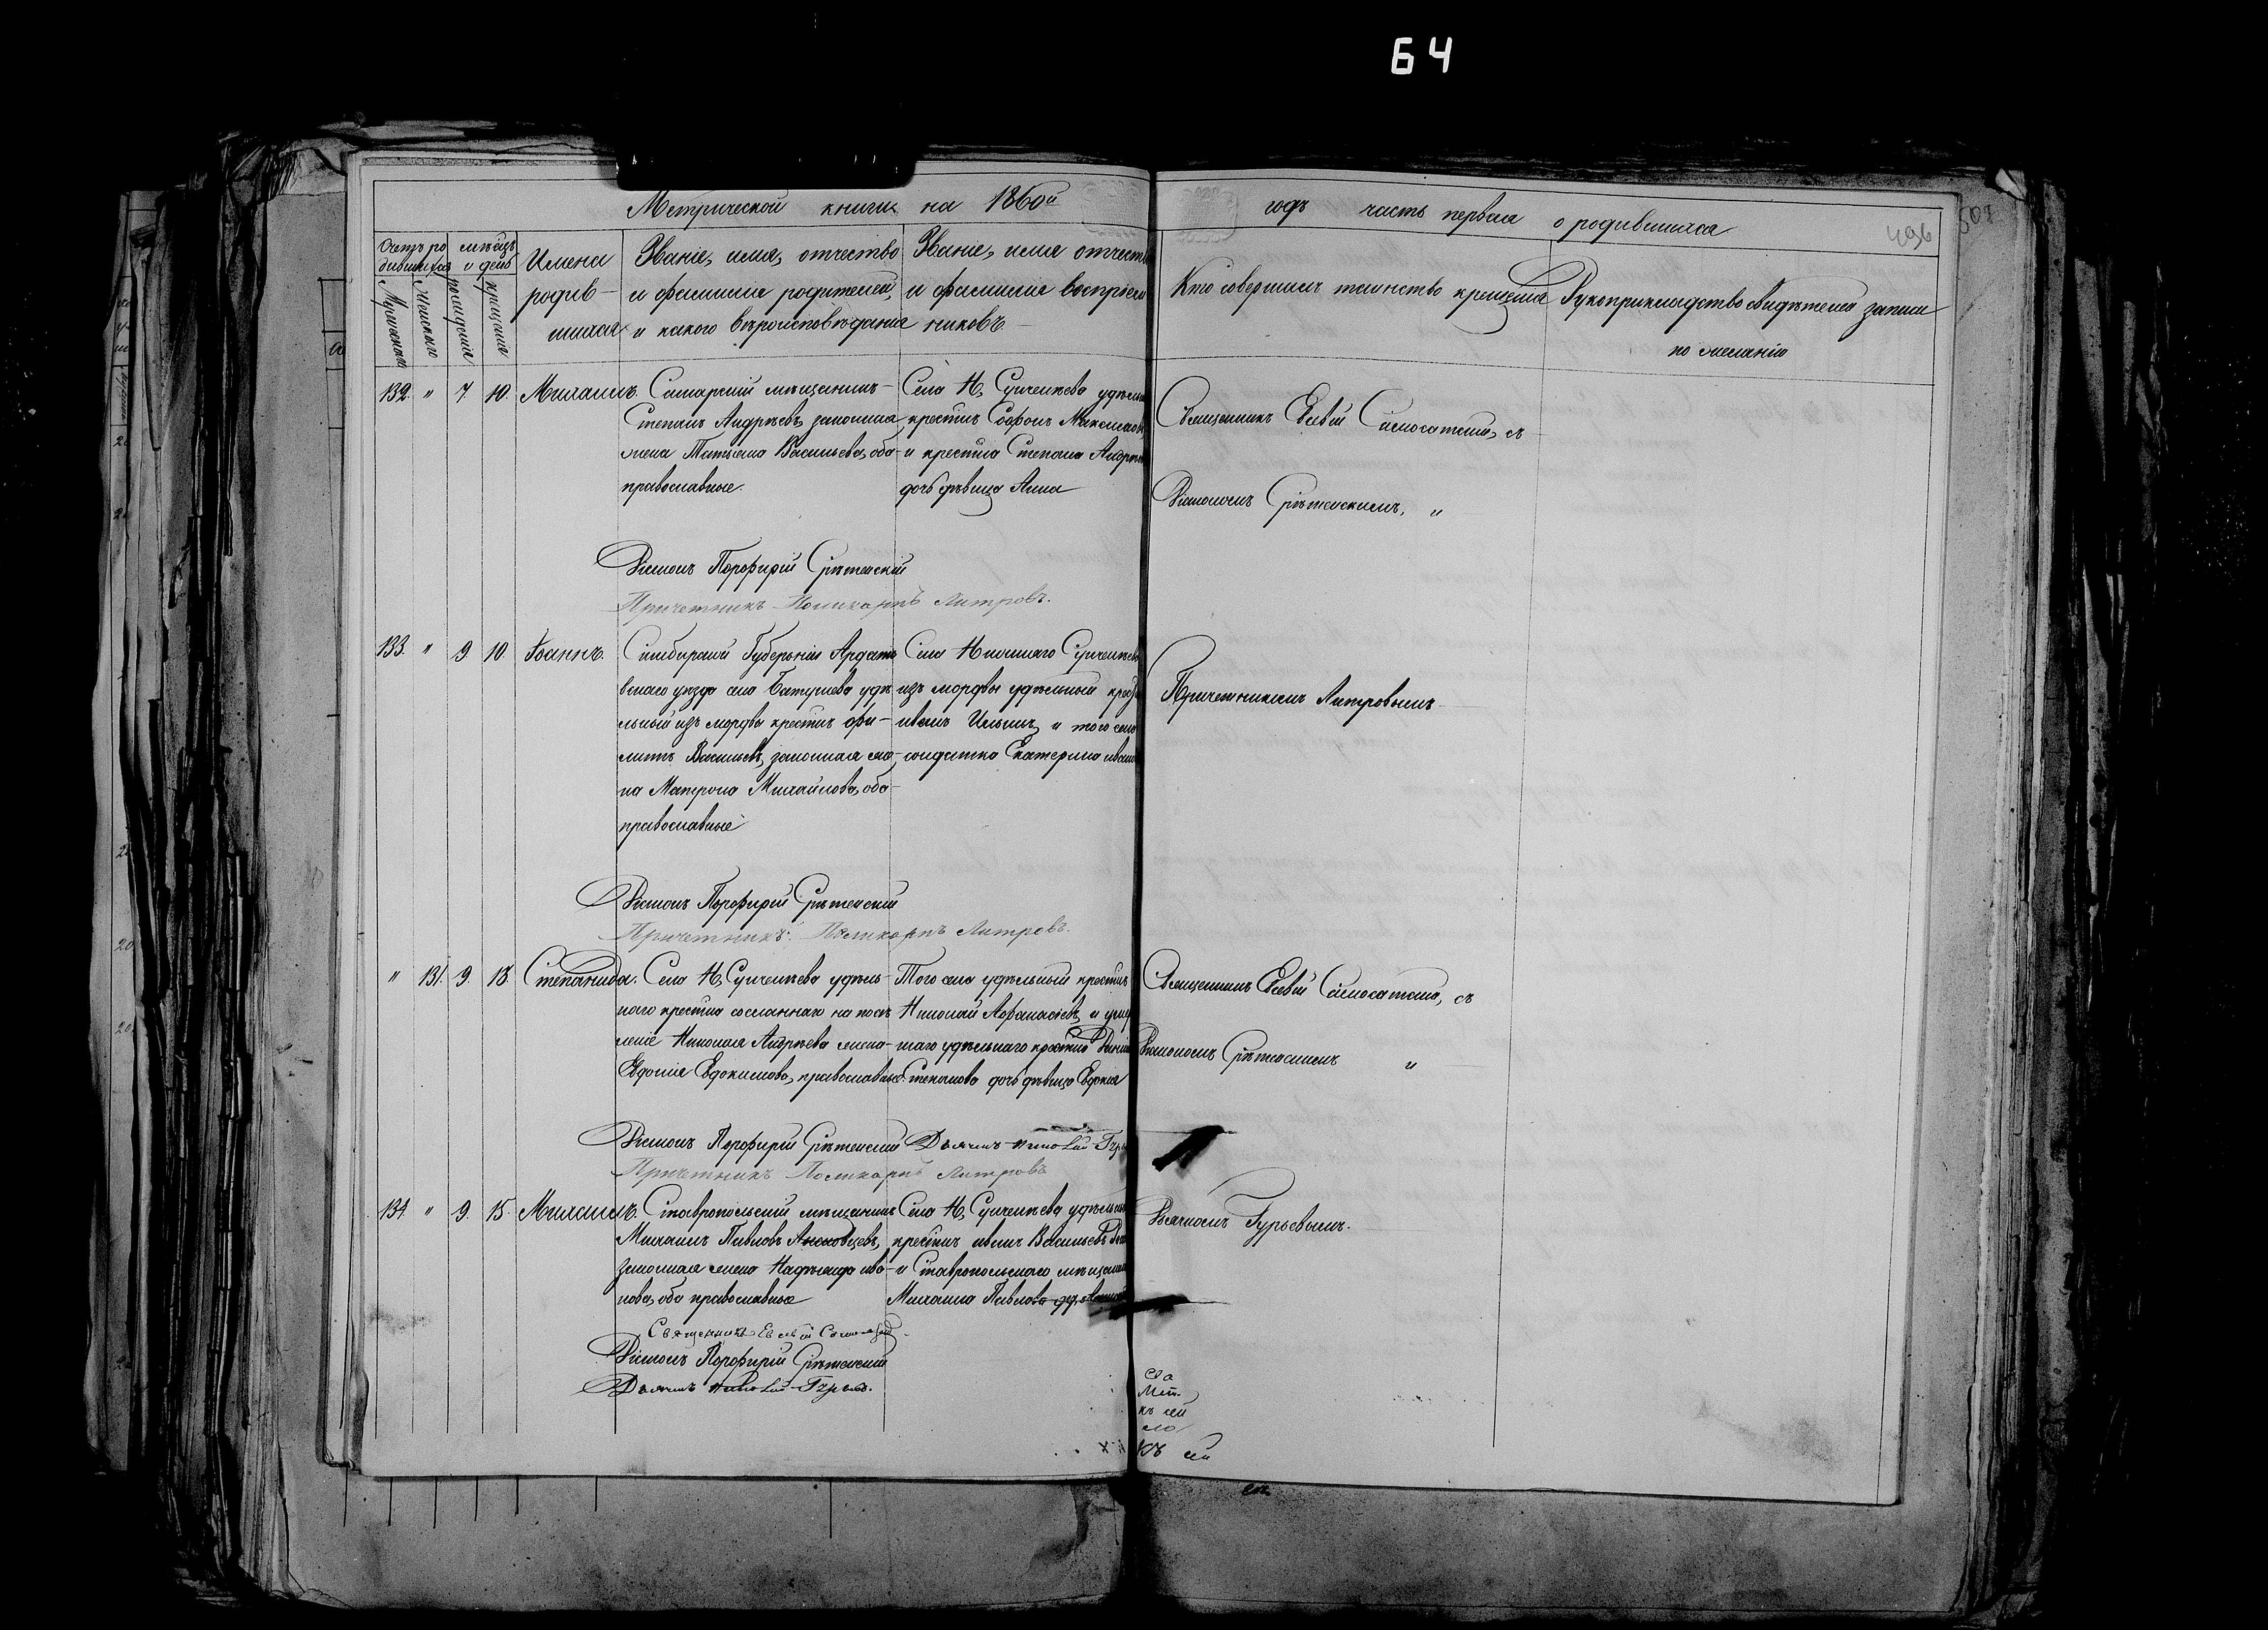 64
Метрической книги на 1860й годъ часть первая о родившихся
496
Счетъ родившихся
Мужескаго
Женскаго
мѣсяцъ и день
рожденія
крещенія
Имена родившихся
Званіе, имя, отчество
и фамилія родителей,
и какого вѣроисповѣданія
Званіе, имя отчество
и фамилія воспріем
никовъ
Кто совершилъ таинство крещенія
Рукоприкладство свидѣтелей записи
по желанію
132. " 7. 10. Михаилъ.
Самарскій мѣщанинъ
Степанъ Андрѣевъ, законная
жена Татьяна Васильева, оба
православные.
Села Н. Сунчелѣева удѣльн
крестин Софонъ Максимовъ
и крестина Степана Андрѣев
дочь дѣвица Анна
Священникъ Евсевій Самосатскій, съ
Діакономъ Срѣтенскимъ, "
Діаконъ Порфирій Срѣтенскій
Причетникъ Поликарпъ Литровъ.
133. " 9 10 Іоаннъ.
Симбирской Губерніи Ардато
вскаго уѣзда села Батушева удѣ
льный изъ мордвы крестин Фи-
липъ Васильевъ, законная же-
на Матрона Михайлова, оба
православные
Села Нижняго Сунчелѣев
изъ мордвы удѣльный крес
иванъ Ильинъ, и того села
солдатка Екатерина иван
Причетникомъ Литровымъ
Діаконъ Порфирій Срѣтенскій
Причетникъ Поликарпъ Литровъ.
" 131. 9. 13. Степанида.
Села Н. Сунчелѣева удѣль-
наго крестина сосланнаго на посе
леніе Николая Андрѣева жена
Евдокія Евдокимова, православные.
Того села удѣльный крестин
Николай Афанасіевъ, и умер
шаго удѣльнаго крестина
Степанова дочь дѣвица Евдокія
Священникъ Евсевій Самосатскій, съ
Діакономъ Срѣтенскимъ "
Діаконъ Порфирій Срѣтенскій Дьячекъ
Причетникъ Поликарпъ Литровъ
134. " 9. 15. Михаилъ.
Ставропольскій мѣщанинъ
Михаилъ Павловъ
законная жена Надѣжда ива-
нова, оба православные
Села Н. Сунчелѣева удѣльн
крестин иванъ Васильевъ
и Ставропольскаго мѣщанин
Михаила Павлова
Дьячкомъ Гурьевымъ.
Священникъ Евсевій
Діаконъ Порфирій Срѣтенскій
Дьячекъ